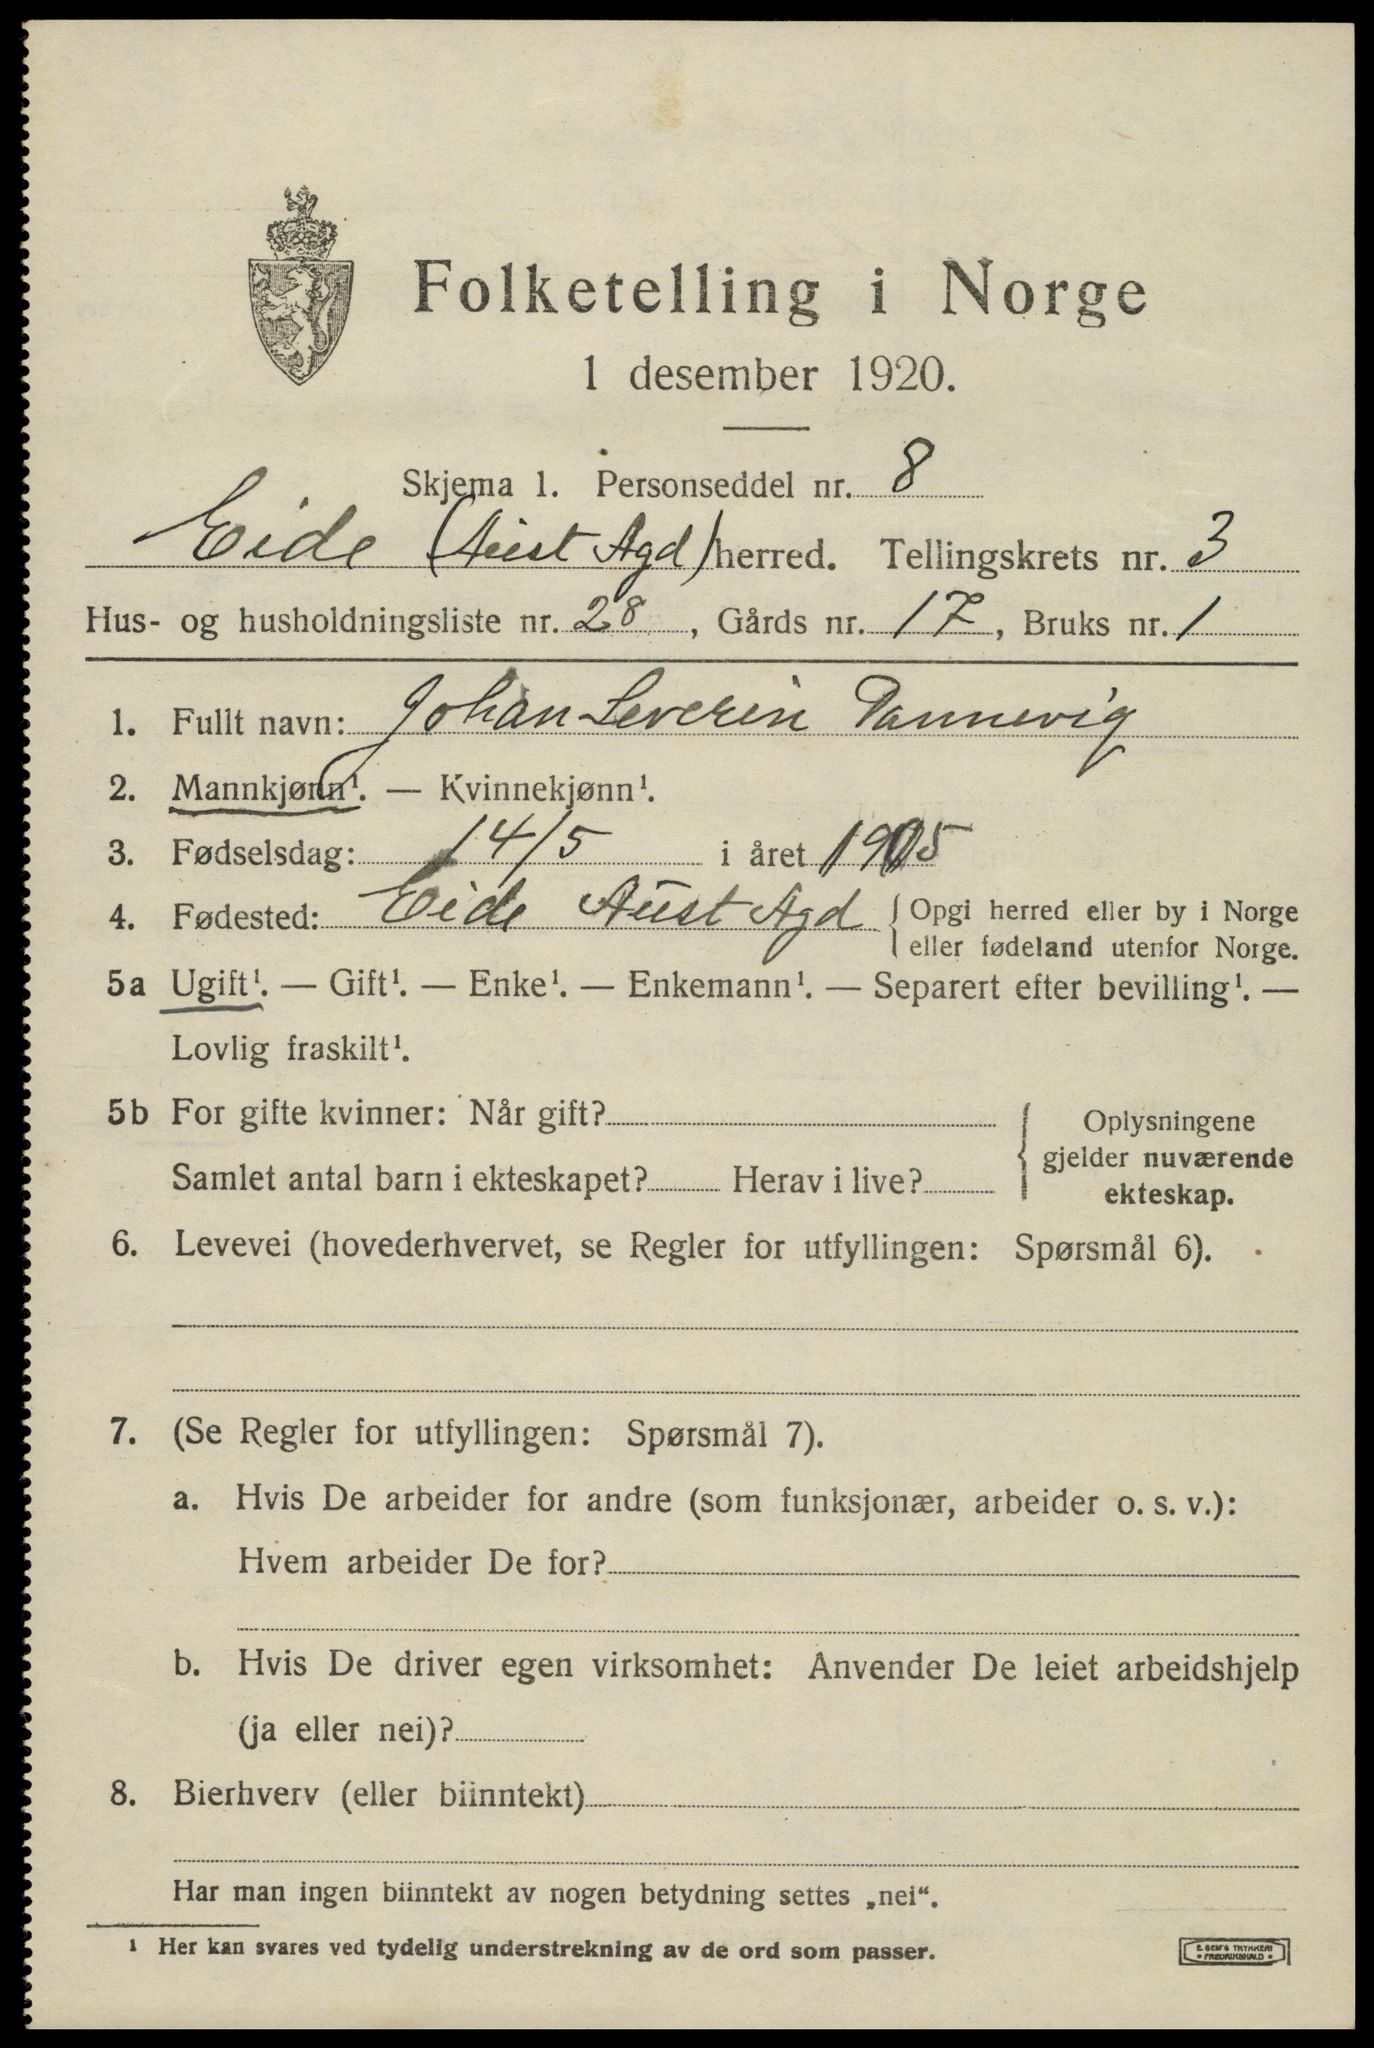 Folketelling i Norge
1 desember 1920.
Skjema 1. Personseddel nr. 8
Eide (Aust Agd) herred. Tellingskrets nr. 3
Hus- og husholdningsliste nr. 28, Gårds nr. 17, Bruks nr. 1
1. Fullt navn: Johan Severin Dannevig
2. Mannkjønn¹. — Kvinnekjønn¹.
3. Fødselsdag: 14/5 i året
4. Fødested: Eide Aust Agd { Opgi herred eller by i Norge
eller fødeland utenfor Norge.
5a Ugift¹. — Gift¹. — Enke¹. — Enkemann¹. — Separert efter bevilling¹. —
Lovlig fraskilt¹.
5b For gifte kvinner: Når gift?
Samlet antal barn i ekteskapet? Herav i live?
Oplysningene
gjelder nuværende
ekteskap.
6. Levevei (hovederhvervet, se Regler for utfyllingen: Spørsmål 6).
7. (Se Regler for utfyllingen: Spørsmål 7).
a. Hvis De arbeider for andre (som funksjonær, arbeider o. s. v.):
Hvem arbeider De for?
b. Hvis De driver egen virksomhet: Anvender De leiet arbeidshjelp
(ja eller nei)?
8. Bierhverv (eller biinntekt)
Har man ingen biinntekt av nogen betydning settes „nei“.
¹ Her kan svares ved tydelig understrekning av de ord som passer.
E. SEM'S TRYKKERI
FREDRIKSHALD